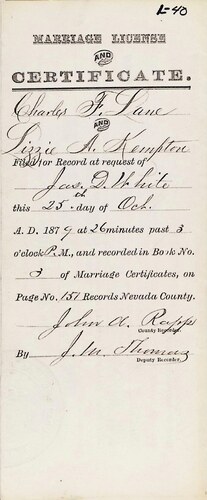 L-40
MARRIAGE LICENSE
AND
CERTIFICATE.
Charles F. Lane
AND
Lizzie A. Kempton
Filed for Record at request of
Jas. D. White
this 25th day of Oct.
A. D. 1879 at 26 minutes past 3
o'clock P. M., and recorded in Book No.
3 of Marriage Certificates, on
Page No. 151 Records Nevada County.
John A. Rapp
County Recorder.
By J. M. Thomas
Deputy Recorder.